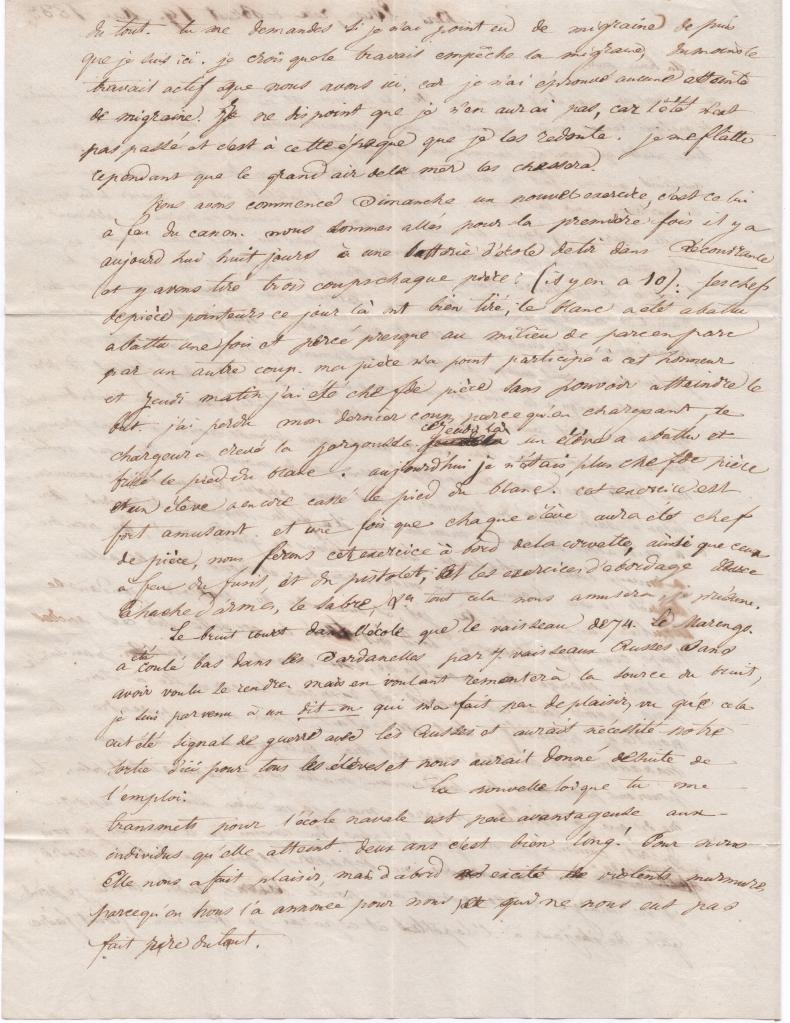 du tout. tu me demandes si je n'ai point eu de migraine depuis
que je suis ici. je crois que le travail empêche la migraine, du moins le
travail actif que nous avons ici, car je n'ai éprouvé aucune atteinte
de migraine. Je ne dis point que je n'en aurai pas, car l'été n'est
pas passé et c'est à cette époque que je les redoute. je me flatte
cependant que le grand air de la mer les chassera.
Nous avons commencé Dimanche un nouvel exercice, c'est celui
à feu du canon. nous sommes allés pour la première fois il y a
aujourd'hui huit jours à une batterie d'école de tir dans Recouvrance
et y avons tiré trois coups chaque pièce. (il y en a 10). les chefs
de pièce pointeurs ce jour là ont bien tiré, le blanc a été abattu
abattu une fois et percé presque au milieu de part en part
par un autre coup. ma pièce n'a point participé à cet honneur
et Jeudi matin j'ai été chef de pièce sans pouvoir atteindre le
but. j'ai perdu mon dernier coup, parcequ'en chargeant, le
chargeur a crevé la gargousse. ce jeudi là un élève a abattu et
brisé le pied du blanc. aujourd'hui je n'étais plus chef de pièce
et un élève a encore cassé le pied du blanc. cet exercice est
fort amusant et une fois que chaque élève aura été chef
de pièce, nous ferons cet exercice à bord de la corvette, ainsi que ceux
à feu du fusil et du pistolet, et les exercices d'abordage avec
la hache d'armes, le sabre, &a tout cela nous amusera, je présume.
Le bruit court dans l'école que le vaisseau de 74. le Marengo
a été coulé bas dans les Dardanelles par 7 vaisseaux Russes sans
avoir voulu se rendre. mais en voulant remonter à la source du bruit,
je suis parvenu à un dit-on qui m'a fait peu de plaisir, vu que cela
eut été signal de guerre avec les Russes et aurait nécessité notre
sortie d'ici pour tous les élèves et nous aurait donné de suite de
l'emploi. La nouvelle loi que tu me
transmets pour l'école navale est peu avantageuse aux
individus qu'elle atteint. deux ans c'est bien long! Pour nous
Elle nous a fait plaisir, mais d'abord excité de violents murmures
parcequ'on nous l'a annoncé pour nous, ce qui ne nous eut pas
fait rire du tout.